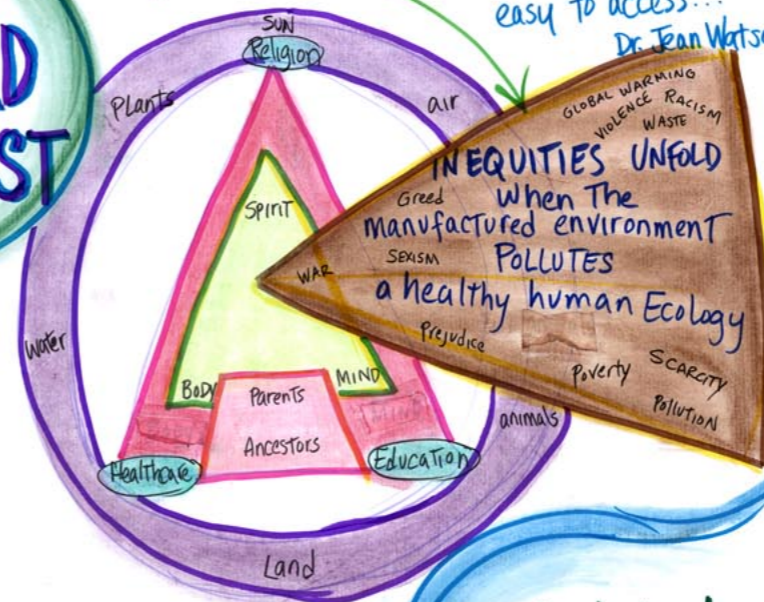 easy to access...
Dr. Jean Wats
D
ST
SUN
Religion
Plants
air
Water
animals
Land
SPIRIT
BODY
MIND
Parents
Ancestors
Healthcare
Education
GLOBAL WARMING
VIOLENCE RACISM
WASTE
INEQUITIES UNFOLD
Greed
When The
manufactured environment
SEXISM
POLLUTES
WAR
a healthy human Ecology
Prejudice
Poverty
SCARCITY
Pollution